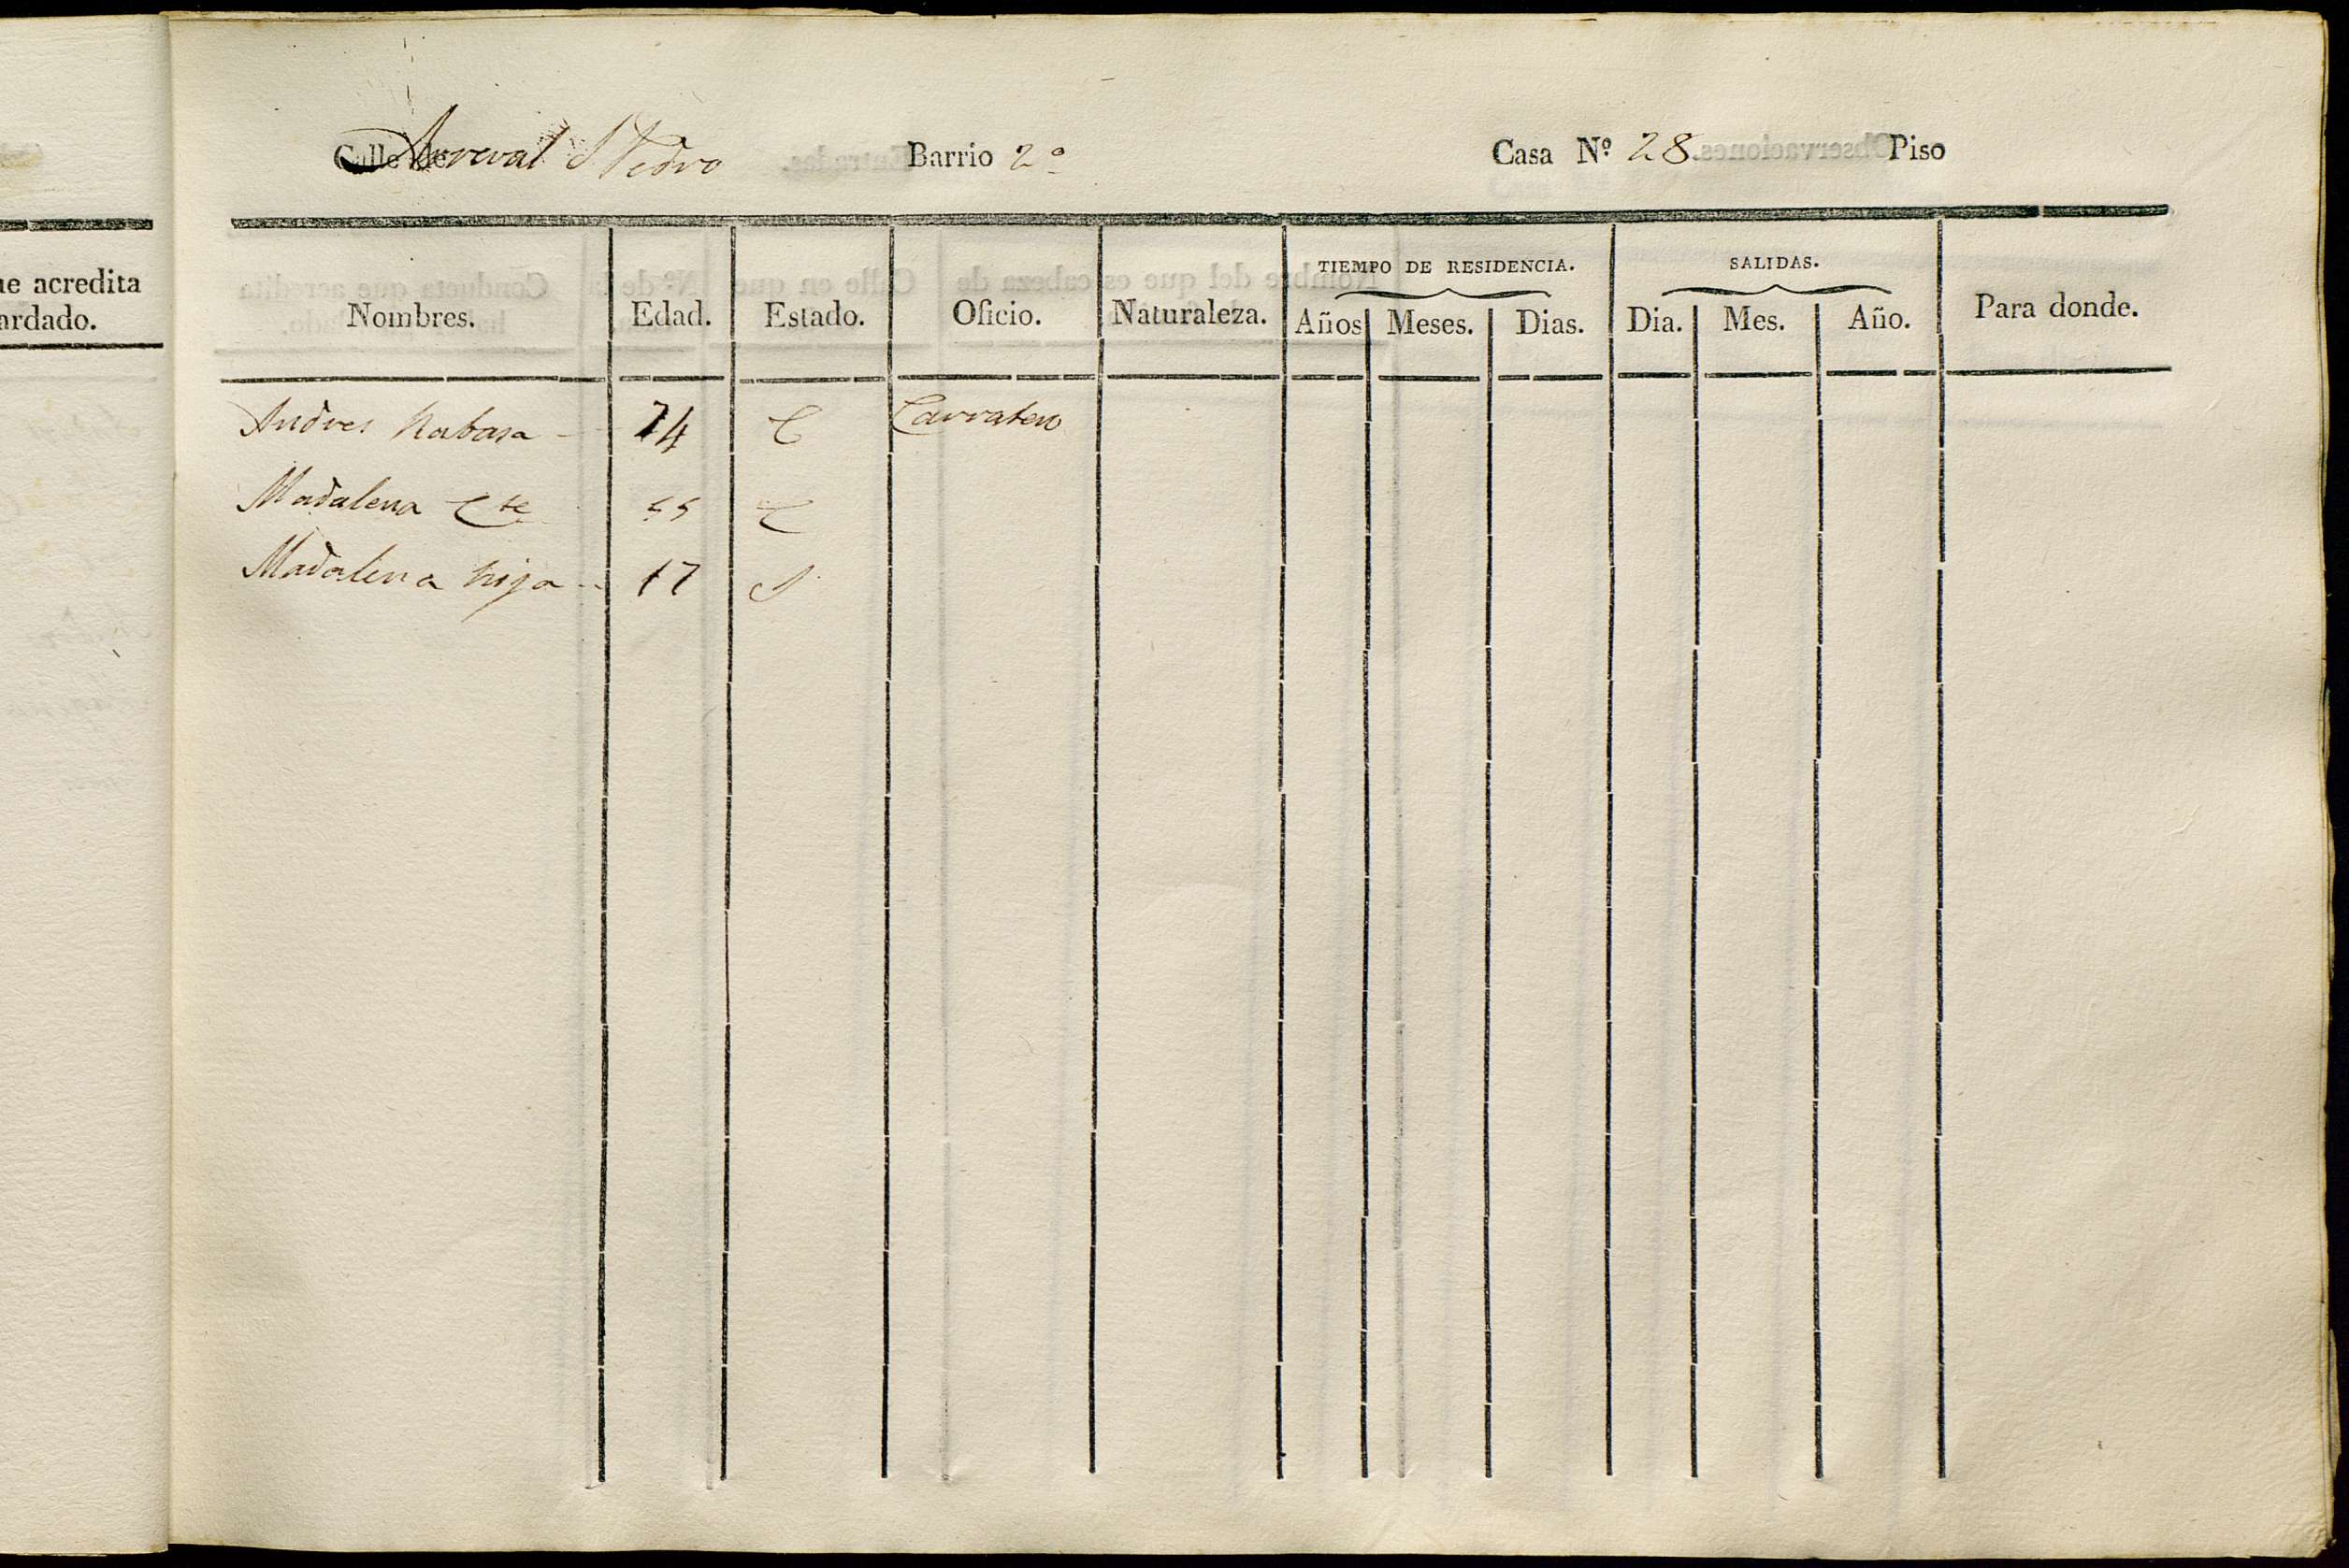 ue acredita
ardado.
Arrval S Pedro Barrio 2º Casa Nº 28. Piso
TIEMPO DE RESIDENCIA. SALIDAS.
Nombres. Edad. Estado. Oficio. Naturaleza. Años Meses. Dias. Dia. Mes. Año. Para donde.
Andres Rabasa 74 C Carratero
Madalena Cte 55 C
Madalena hija 17 S